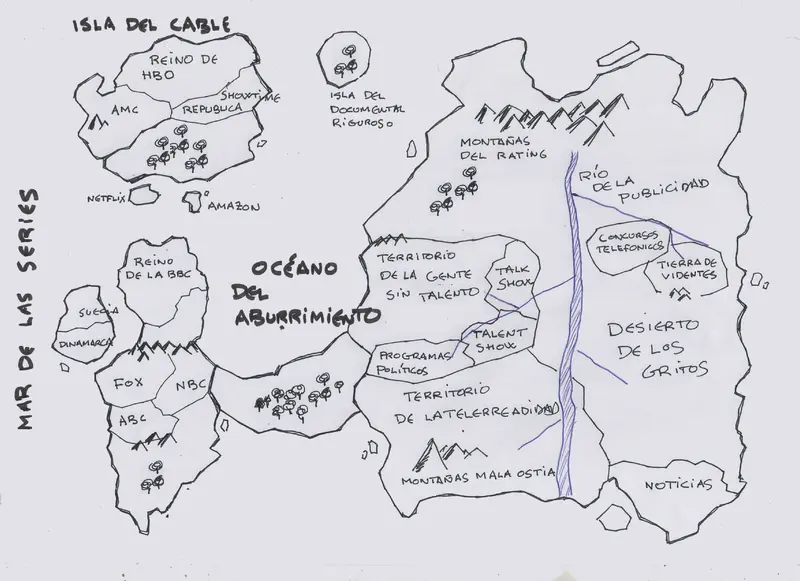 ISLA DEL CABLE
REINO DE
HBO
AMC
SHOWTIME
REPUBLICA
NETFLIX
AMAZON
ISLA DEL
DOCUMENTAL
RIGUROSO
MAR DE LAS SERIES
REINO
DE LA BBC
SUECIA
DINAMARCA
FOX
NBC
ABC
OCÉANO
DEL
ABURRIMIENTO
MONTAÑAS
DEL RATING
RÍO
DE LA
PUBLICIDAD
CONCURSOS
TELEFONICOS
TIERRA DE
VIDENTES
TERRITORIO
DE LA GENTE
SIN TALENTO
TALK
SHOW
TALENT
SHOW
PROGRAMAS
POLÍTICOS
DESIERTO
DE LOS
GRITOS
TERRITORIO
DE LA TELERREADIDAD
MONTAÑAS MALA OSTIA
NOTICIAS